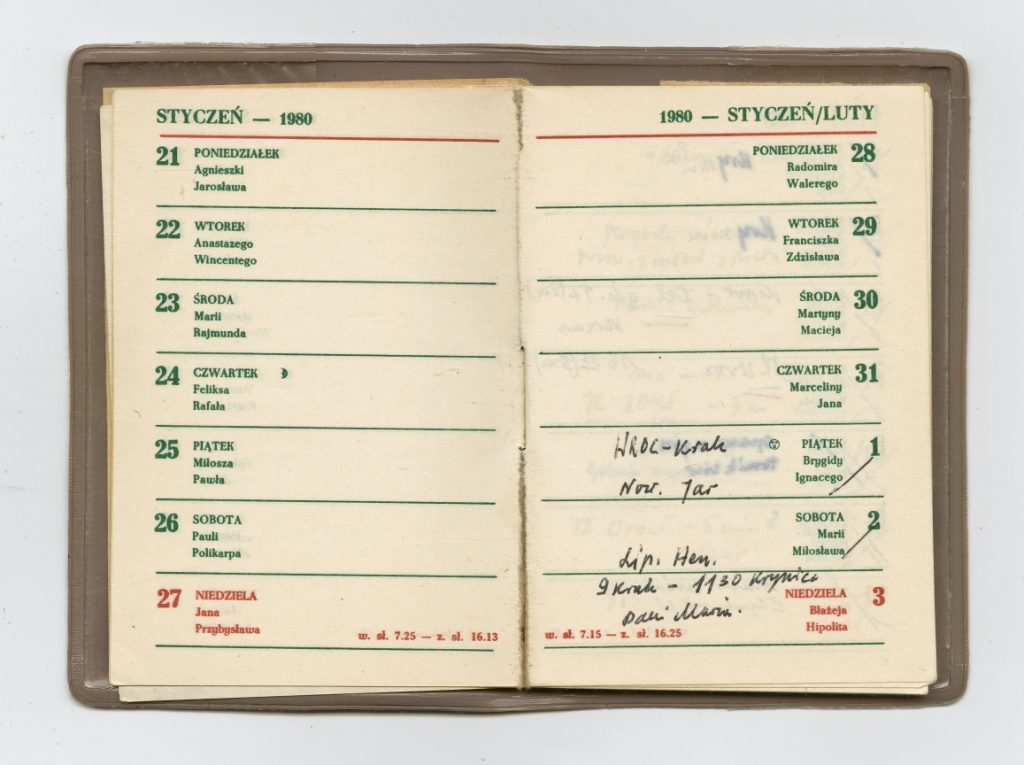 STYCZEŃ — 1980
21 PONIEDZIAŁEK
Agnieszki
Jarosława
22 WTOREK
Anastazego
Wincentego
23 ŚRODA
Marii
Rajmunda
24 CZWARTEK
Feliksa
Rafała
25 PIĄTEK
Miłosza
Pawła
26 SOBOTA
Pauli
Polikarpa
27 NIEDZIELA
Jana
Przybysława
w. sł. 7.25 — z. sł. 16.13
1980 — STYCZEŃ/LUTY
PONIEDZIAŁEK 28
Radomira
Walerego
WTOREK 29
Franciszka
Zdzisława
ŚRODA 30
Martyny
Macieja
CZWARTEK 31
Marceliny
Jana
WROC-Krak PIĄTEK 1
Brygidy
Now. Jar Ignacego
SOBOTA 2
Marii
Lip. Hen. Miłosława
9 Krak - 1130 Krynica
NIEDZIELA 3
Maria. Błażeja
Hipolita
w. sł. 7.15 — z. sł. 16.25